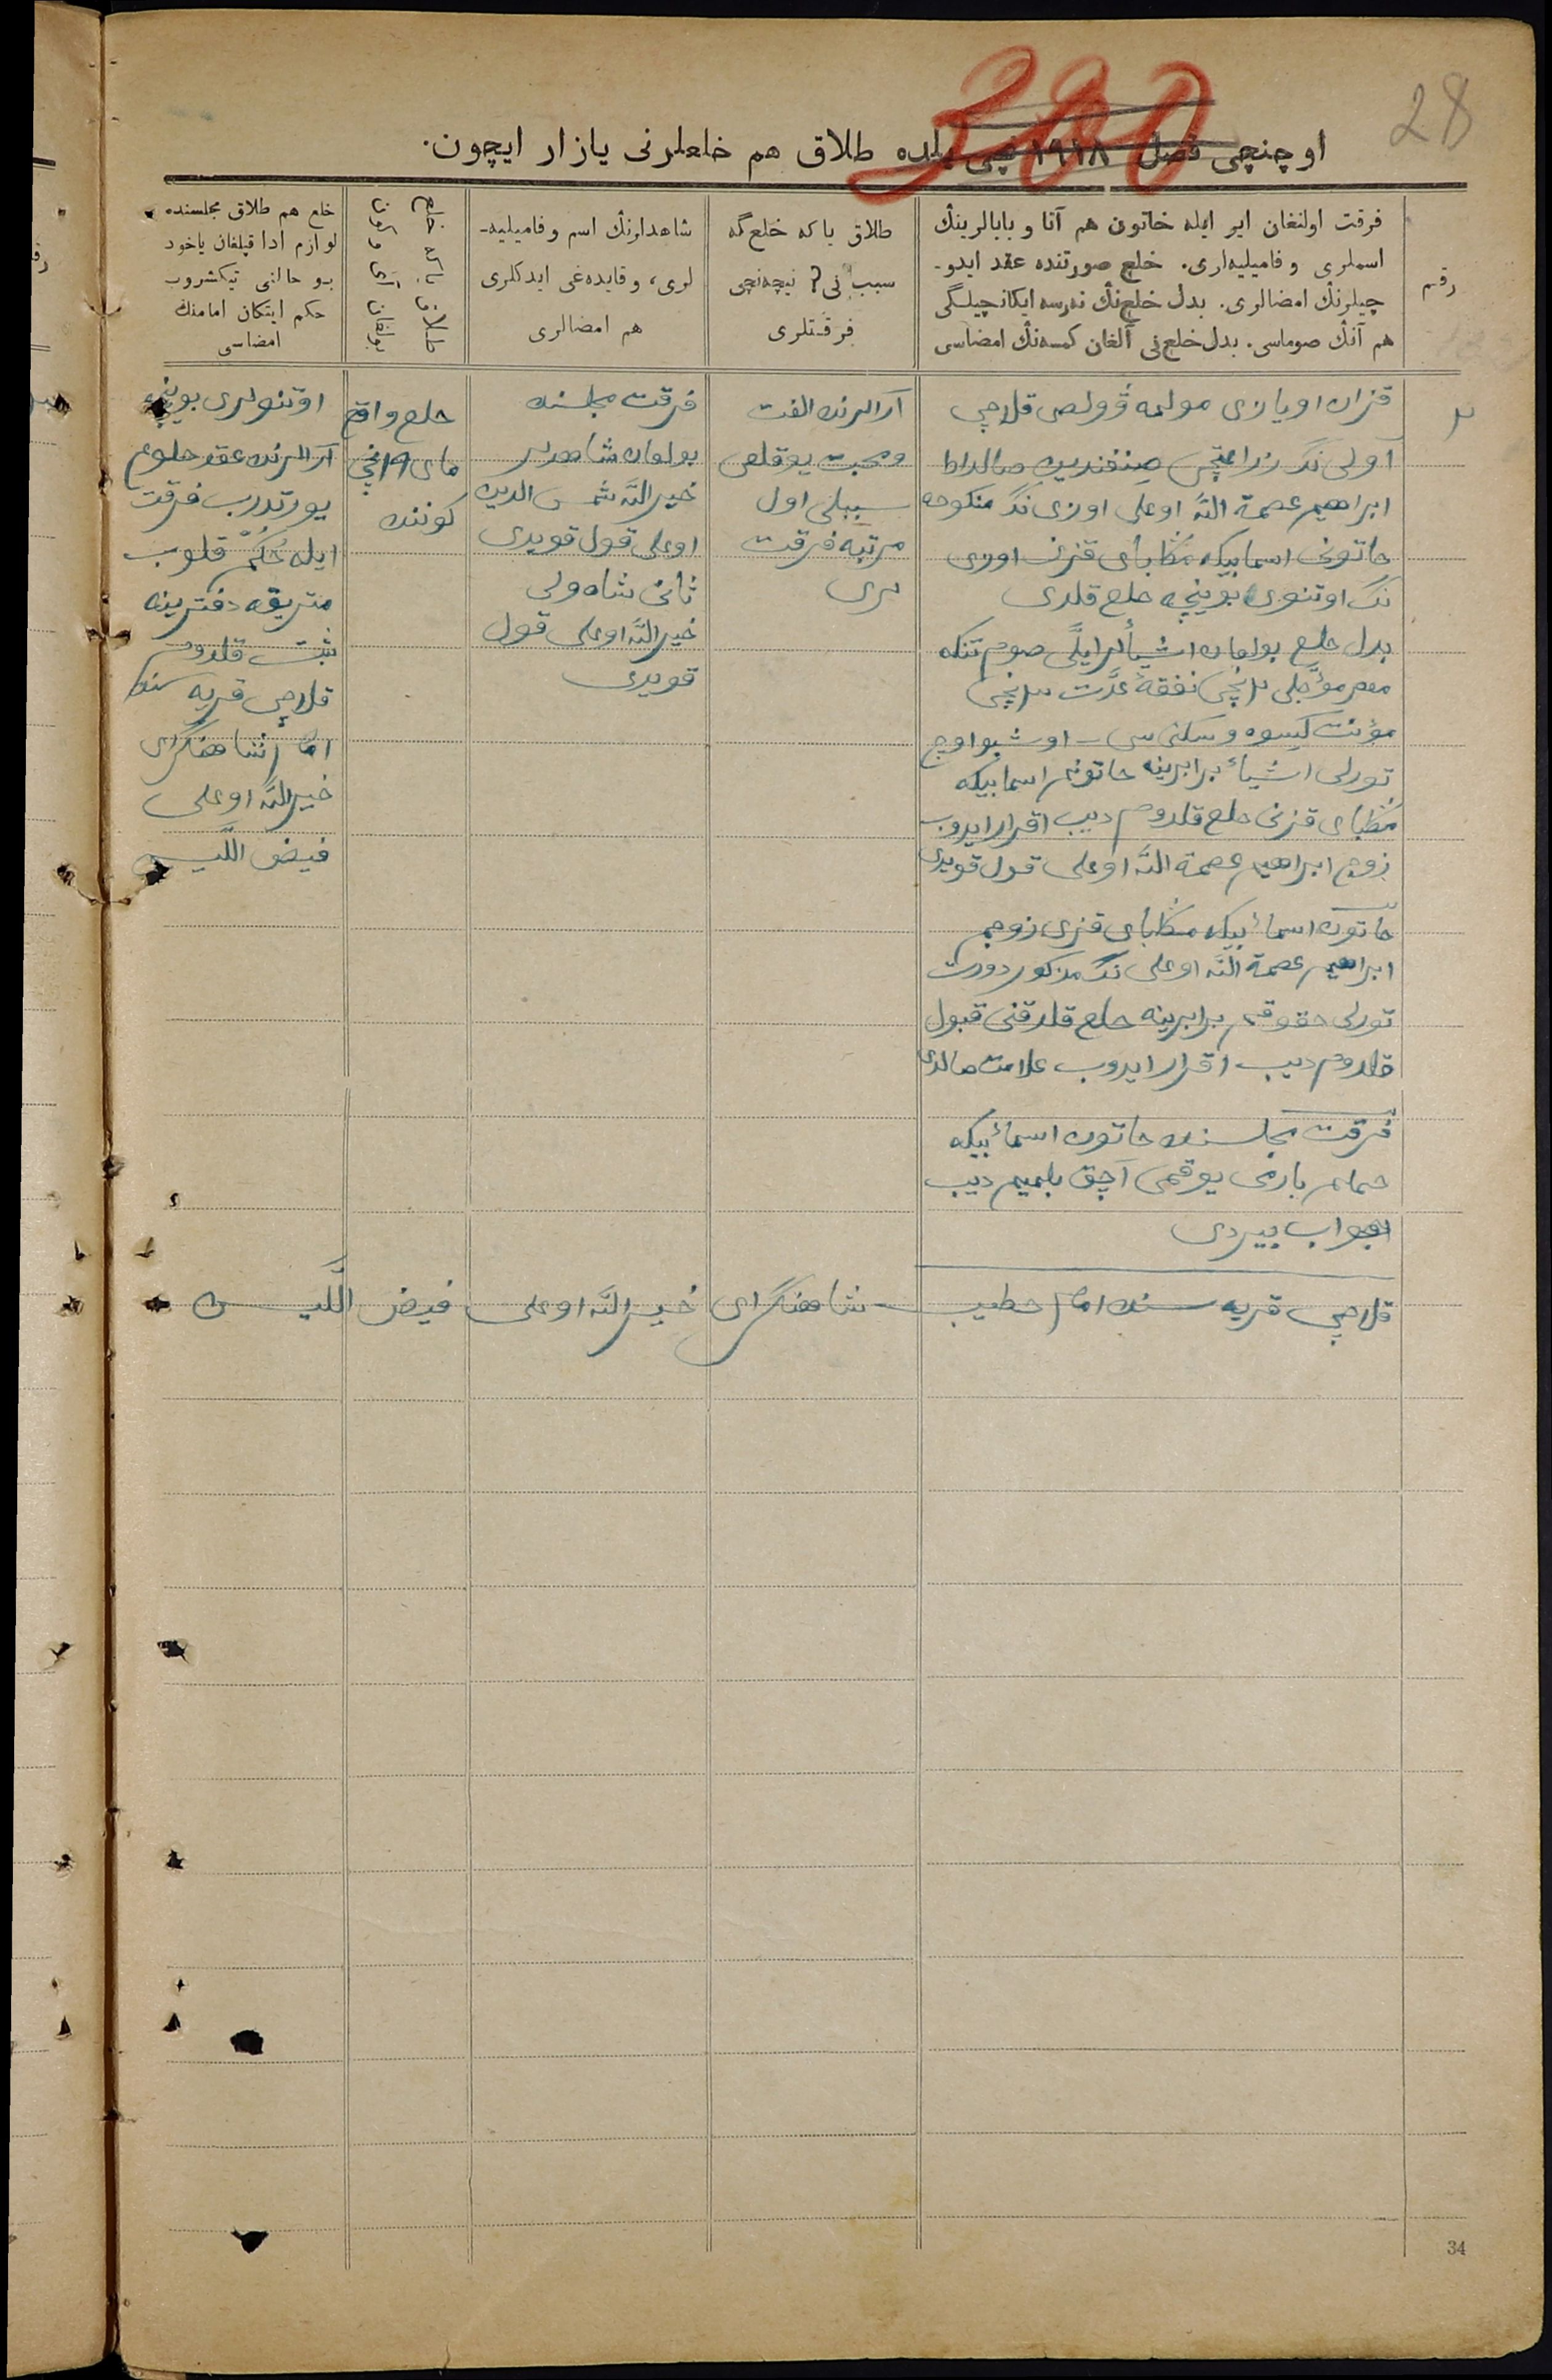 28
200
اوچنچی فصل ١٩١٨ نچی یلده طلاق هم خلعلرنی یازار ایچون.
رقم
فرقت اولنغان ایر ایله خاتون هم آنا و بابالرینڭ
اسملری و فامیلیه‌لری. خلع صورتنده عقد ایدو-
چیلرنڭ امضالری. بدل خلع‌نڭ نه‌رسه ایکانچیلگی
هم آنڭ صوماسی. بدل خلع‌نی آلغان کمسه‌نڭ امضاسی
طلاق یا که خلع گه
سبب نی؟ نیچه‌نچی
فرقتلری
شاهدلرنڭ اسم و فامیلیه-
لری، و قایده‌غی ایدکلری
هم امضالری
طلاق یا که خلع
بولغان آی و کون
خلع هم طلاق مجلسنده
لوازم ادا قیلغان یاخود
بو حالنی تیکشروب
حکم ایتکان امامنڭ
امضاسی
٢
قزان اویازی مولمه ڤولص قلاچی
آولی نڭ زراعتچی صنفندین
ابراهیم عصمة الله اوغلی اوزی نڭ منکوحه
خاتونی اسمابیکه قزنی اوزی
نڭ اوتنوی بوینچه خلع قلدی
بدل خلع بولغان اشیألر ایللی صوم تنکه
مهر مؤجلی ٢نچی نفقهٔ عدت ٣نچی
مؤنت کسوه و سکنی سی - اوشبو اوچ
تورلی اشیاء برابرینه خاتونم اسمابیکه
قزنی خلع قلدوم دیب اقرار ایدوب
زوج ابراهیم عصمة الله اوغلی قول قویدی
خاتون اسماءبیکه قزی زوجم
ابراهیم عصمة الله اوغلی نڭ مذکور دورت
تورلی حقوقم برابرینه خلع قلدقنی قبول
قلدوم دیب اقرار ایدوب علامت صالدی
فرقت مجلسنده خاتون اسماءبیکه
حملم بارمی یوقمی آچق بلمیم دیب
جواب بیردی
آرالرنده الفت
و محبت یوقلغی
سببلی اول
مرتبه فرقت
لری
فرقت مجلسنده
بولغان شاهدلر
خیر الله شمس الدین
اوغلی قول قویدی
ثانی شاه ولی
خیر الله اوغلی قول
قویدی
خلع واقع
مای ١٩نچی
کوننده
اوتنولری بوینچه
آرالرنده عقد خلع
یورتدرب فرقت
ایله حکم قلوب
متریقه دفترینه
ثبت قلدوم
قلاچی قریه سنده
امام شاهنگرای
خیر الله اوغلی
فیض اللین
قلاچی قریه سنده امام خطیب شاهنگرای خیر الله اوغلی فیض اللین
34